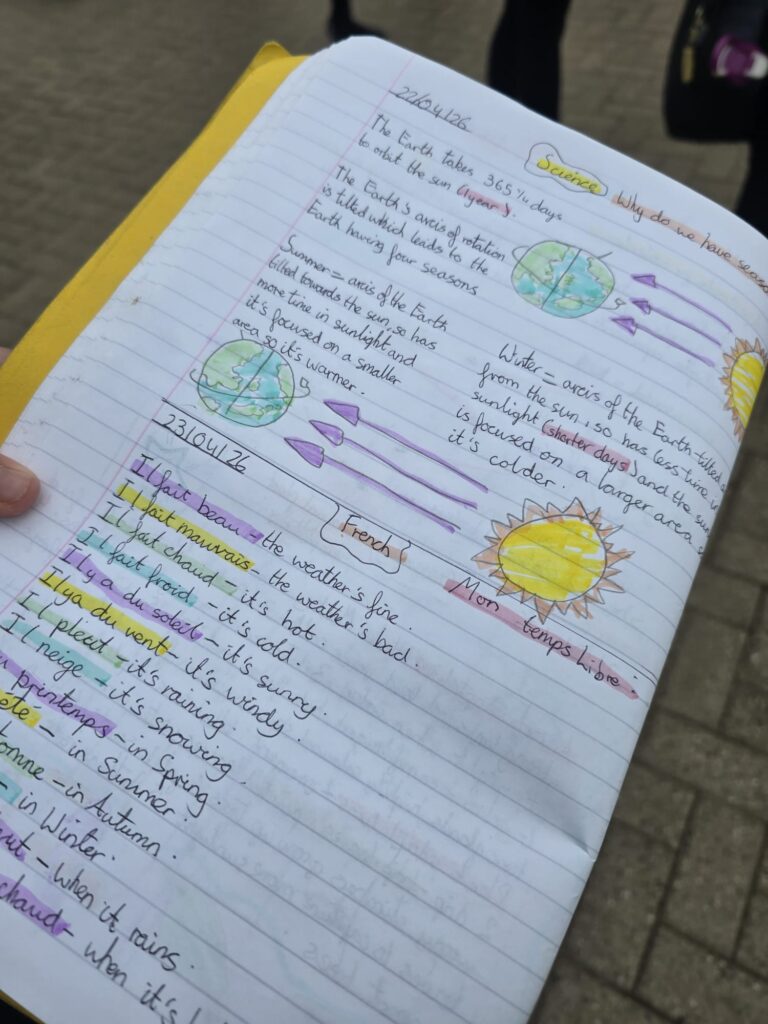 22/04/26
Science
Why do we have
The Earth takes 365¼ days
to orbit the sun (1year).
The Earth's arcis of rotation
is tilted which leads to the
Earth having four seasons
Summer = arcis of the Earth
tilted towards the sun, so has
more time in sunlight and
it's focused on a smaller
area so it's warmer.
Winter = arcis of the Earth tilted
from the sun, so has less time
sunlight (shorter days) and the sun
is focused on a larger area
it's colder.
23/04/26
French
Mon temps libre:
Il fait beau - the weather's fine.
Il fait mauvais - the weather's bad.
Il fait chaud - it's hot.
Il fait froid - it's cold.
Il y a du soleil - it's sunny.
Il y a du vent - it's windy.
Il pleut - it's raining.
Il neige - it's snowing.
printemps - in Spring.
été - in Summer.
- in Autumn.
- in Winter.
- when it rains.
chaud - when it's